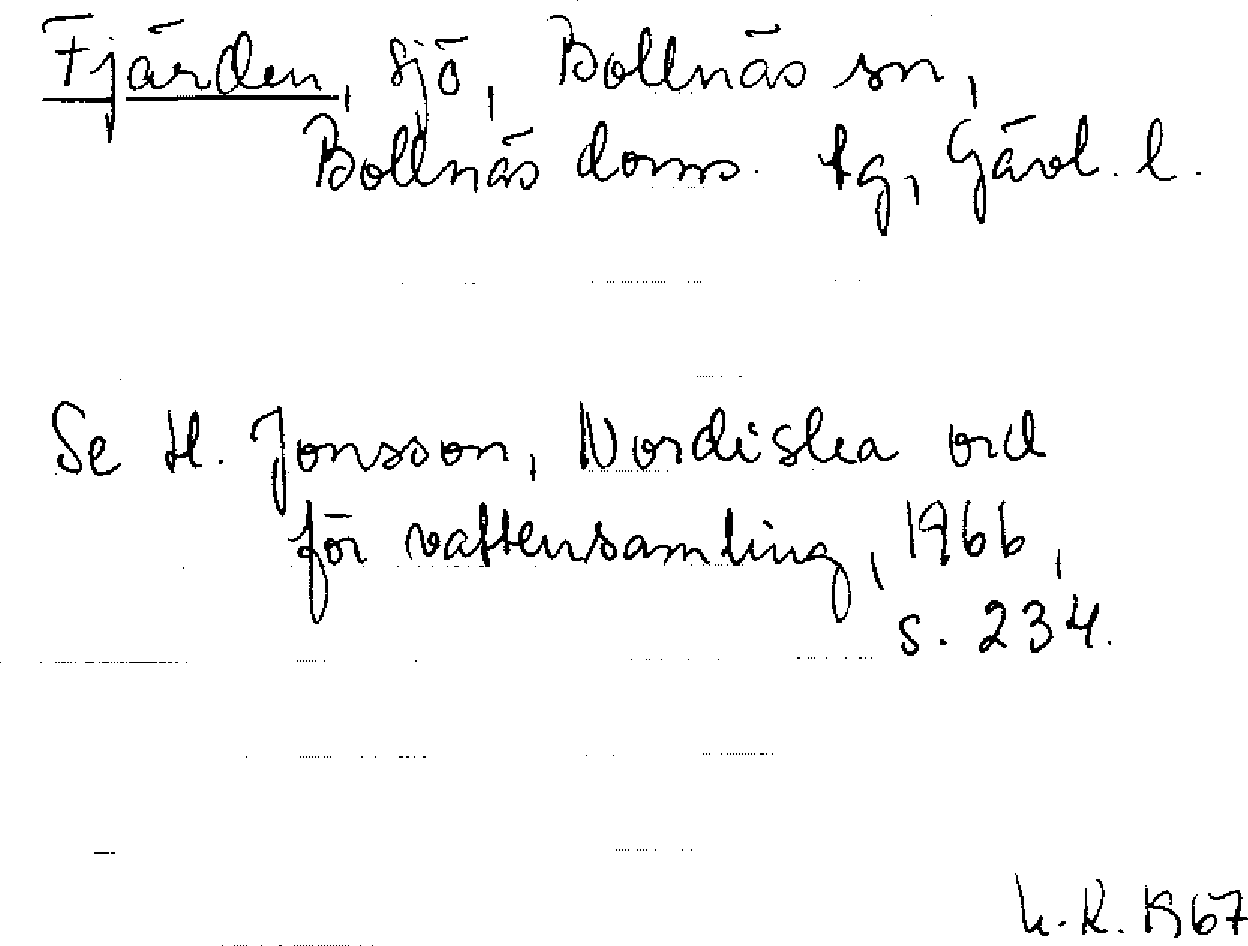 Fjärden, sjö, Bollnäs sn,
Bollnäs doms. tg, Gävl. l.
Se H. Jonsson, Nordiska ord
för vattensamling, 1966,
s. 234.
K. R. 1967